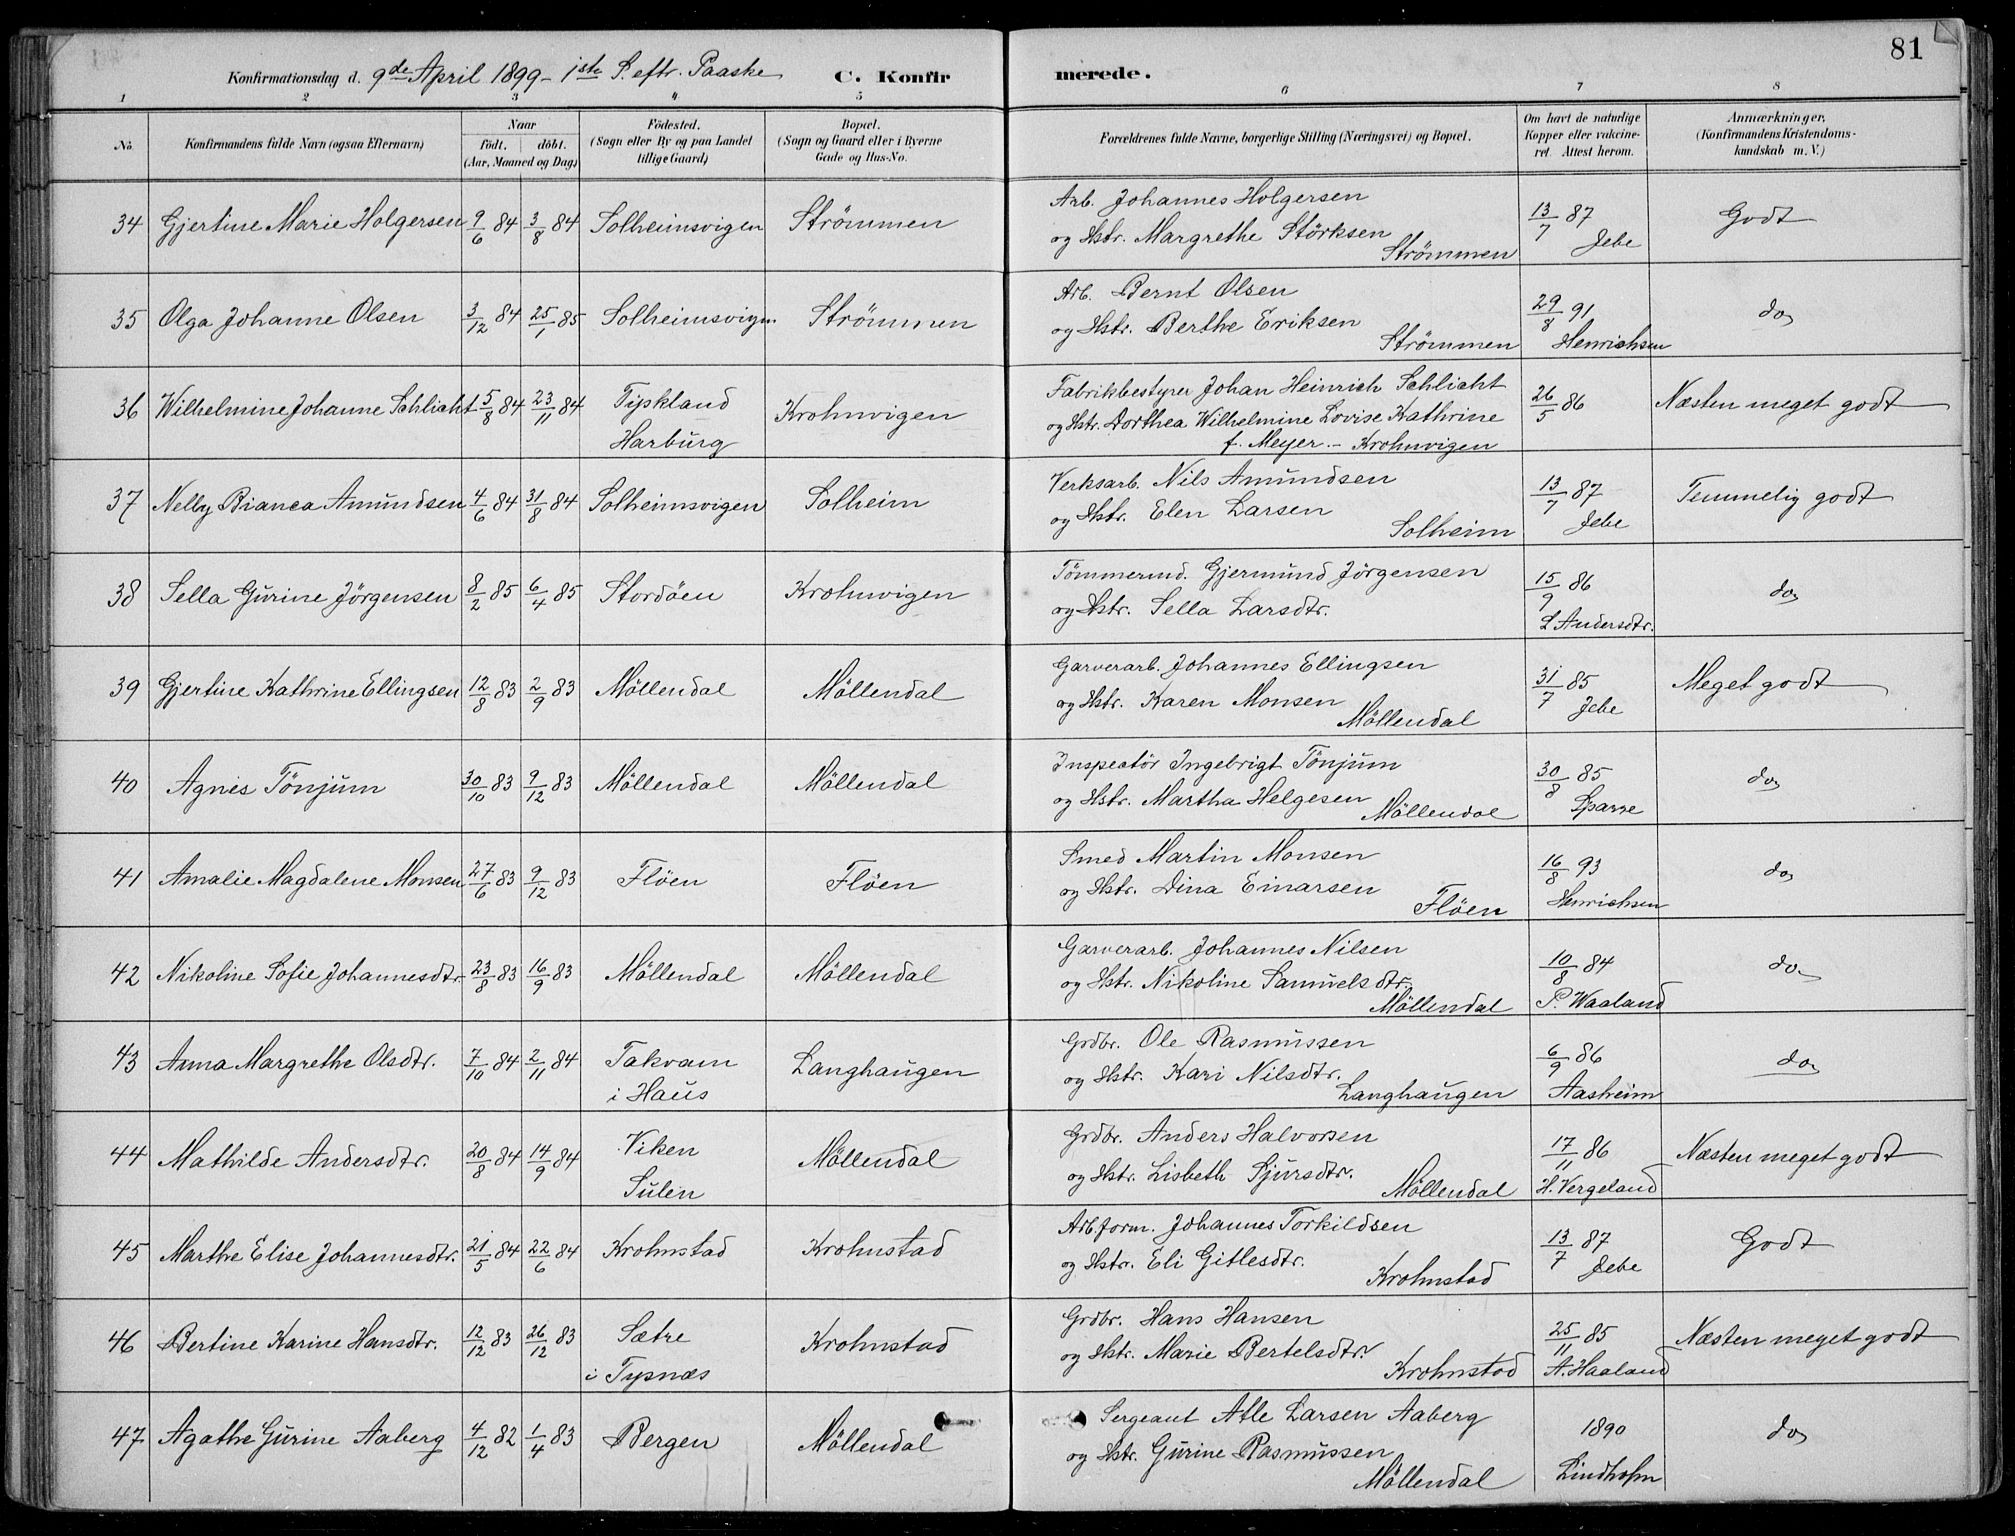 81
Konfirmationsdag d. 9de April 1899 - 1ste S. eftr. Paaske C. Konfirmerede.
1 2 3 4 5 6 7 8
No. Konfirmandens fulde Navn (ogsaa Efternavn) Naar født. døbt. (Aar, Maaned og Dag) Fødested. (Sogn eller By og paa Landet tillige Gaard) Bopæl. (Sogn og Gaard eller i Byerne Gade og Hus-No. Forældrenes fulde Navne, borgerlige Stilling (Næringsvei) og Bopæl. Om havt de naturlige Kopper eller vakcineret. Attest herom. Anmærkninger, (Konfirmandens Kristendomskundskab m. V.)
34 Gjertine Marie Holgersen 9/6 84 3/8 84 Solheimsvigen Strömmen Arb. Johannes Holgersen 13/7 87 Godt
og Hstr. Margrethe Störksen Jebe
Strömmen
35 Olga Johanne Olsen 3/12 84 25/1 85 Solheimsvigen Strömmen Arb. Bernt Olsen 29/8 91 do
og Hstr. Berthe Eriksen
Strömmen Henrichsen
36 Wilhelmine Johanne Schlicht 5/8 84 23/11 84 Tyskland Krohnvigen Fabrikbestyrer Johan Heinrich Schlicht 26/5 86 Næsten meget godt
Harburg og Hstr. Dorthea Wilhelmine Lovise Kathrine
f. Meyer. - Krohnvigen
37 Nelly Bianca Amundsen 4/6 84 31/8 84 Solheimsvigen Solheim Verksarb. Nils Amundsen 13/7 87 Temmelig godt
og Hstr. Elen Larsen Jebe
Solheim
38 Sella Gurine Jörgensen 8/2 85 6/4 85 Stordöen Krohnvigen Tömmermd. Gjermund Jörgensen 15/9 86 do
og Hstr. Sella Larsdtr. L Andersdtr.
39 Gjertine Kathrine Ellingsen 12/8 83 2/9 83 Möllendal Möllendal Garverarb. Johannes Ellingsen 31/7 85 Meget godt
og Hstr. Karen Monsen Jebe
Möllendal
40 Agnes Tönjum 30/10 83 9/12 83 Möllendal Möllendal Inspectör Ingebrigt Tönjum 30/8 85 do
og Hstr. Martha Helgesen Sparre
Möllendal
41 Amalie Magdalene Monsen 27/6 83 9/12 83 Flöen Flöen Smed Martin Monsen 16/8 93 do
og Hstr. Dina Einarsen Henrichsen
Flöen
42 Nikoline Sofie Johannesdtr. 23/8 83 16/9 83 Möllendal Möllendal Garverarb. Johannes Nilsen 10/8 84 do
og Hstr. Nikoline Samuelsdtr. P. Waaland
Möllendal
43 Anna Margrethe Olsdtr. 7/10 84 2/11 84 Takvam Langhaugen Grdbr. Ole Rasmussen 6/9 86 do
i Haus og Hstr. Kari Nilsdtr. Aasheim
Langhaugen
44 Mathilde Andersdtr. 20/8 84 14/9 84 Viken Möllendal Grdbr. Anders Halvorsen 17/11 86 Næsten meget godt
Sulen og Hstr. Lisbeth Sjursdtr. H. Vergeland
Möllendal
45 Marthe Elise Johannesdtr. 21/5 84 22/6 84 Krohnstad Krohnstad Arb.form. Johannes Torkildsen 13/7 87 Godt
og Hstr. Eli Gitlesdtr. Jebe
Krohnstad
46 Bertine Karine Hansdtr. 12/12 83 26/12 83 Sætre Krohnstad Grdbr. Hans Hansen 25/11 85 Næsten meget godt
i Tysnæs og Hstr. Marie Bertelsdtr. A. Haaland
Krohnstad
47 Agathe Gurine Aaberg 4/12 82 1/4 83 Bergen Möllendal Sergeant Atle Larsen Aaberg 1890 do
og Hstr. Gurine Rasmussen Lindholm
Möllendal